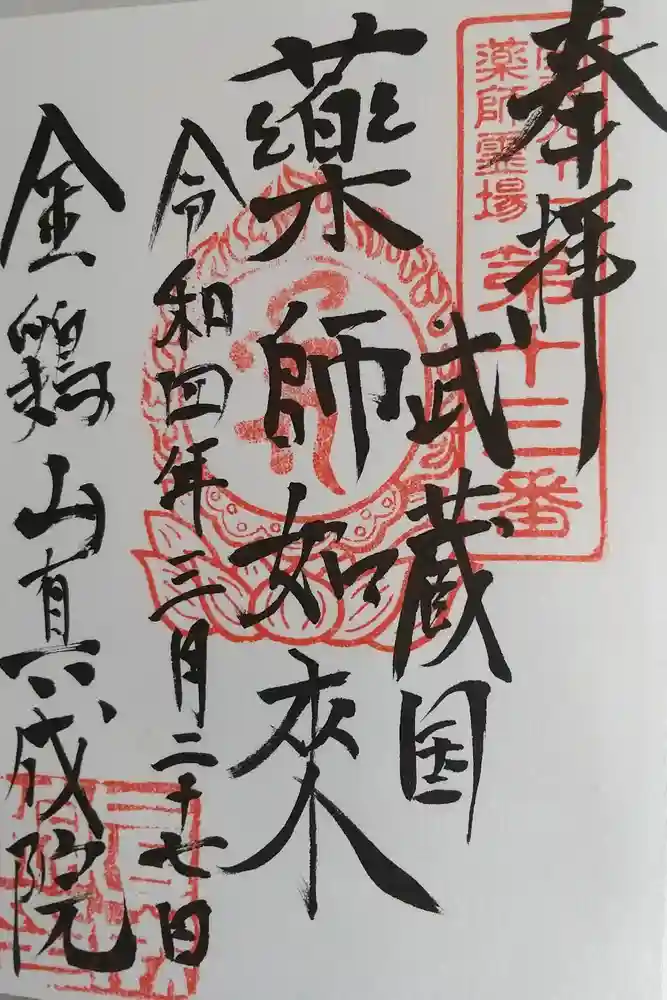 奉拝
薬師霊場
第十三番
武蔵国
薬師如來
令和四年三月二十七日
金鶏山真成院